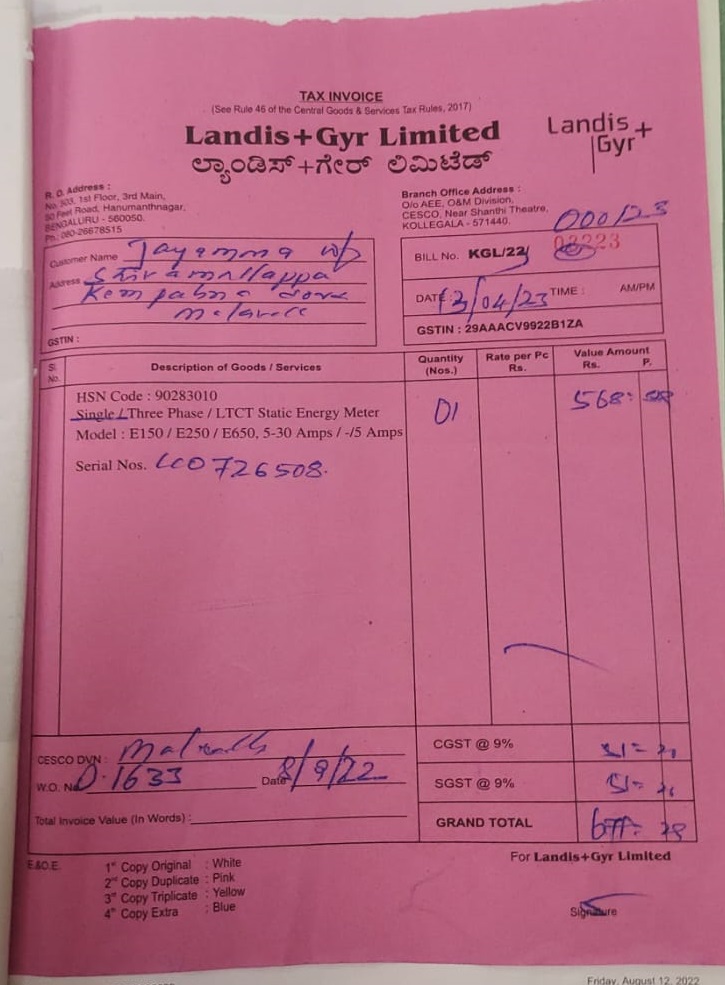 TAX INVOICE
(See Rule 46 of the Central Goods & Services Tax Rules, 2017)
Landis+Gyr Limited
ಲ್ಯಾಂಡಿಸ್+ಗೇರ್ ಲಿಮಿಟೆಡ್
Landis+
Gyr
R. O. Address :
No. 303, 1st Floor, 3rd Main,
80 Feet Road, Hanumanthnagar,
BENGALURU - 560050.
Ph: 080-26678515
Branch Office Address :
O/o AEE, O&M Division,
CESCO, Near Shanthi Theatre,
KOLLEGALA - 571440.
000123
Customer Name Jayamma w/o
Address Shivamallappa
GSTIN :
BILL No. KGL/22/
DATE 13/04/23 TIME : AM/PM
GSTIN : 29AAACV9922B1ZA
Sl. No. Description of Goods / Services Quantity (Nos.) Rate per Pc Rs. Value Amount Rs. P.
HSN Code : 90283010
Single / Three Phase / LTCT Static Energy Meter 01 568=
Model : E150 / E250 / E650, 5-30 Amps / -/5 Amps
Serial Nos. LCO726508.
CESCO DVN :
W.O. No. D-1633 Date 8/9/22
Total Invoice Value (In Words) :
CGST @ 9% 51=
SGST @ 9% 51=
GRAND TOTAL
E&O.E.
1st Copy Original : White
2nd Copy Duplicate : Pink
3rd Copy Triplicate : Yellow
4th Copy Extra : Blue
For Landis+Gyr Limited
Signature
Friday, August 12, 2022